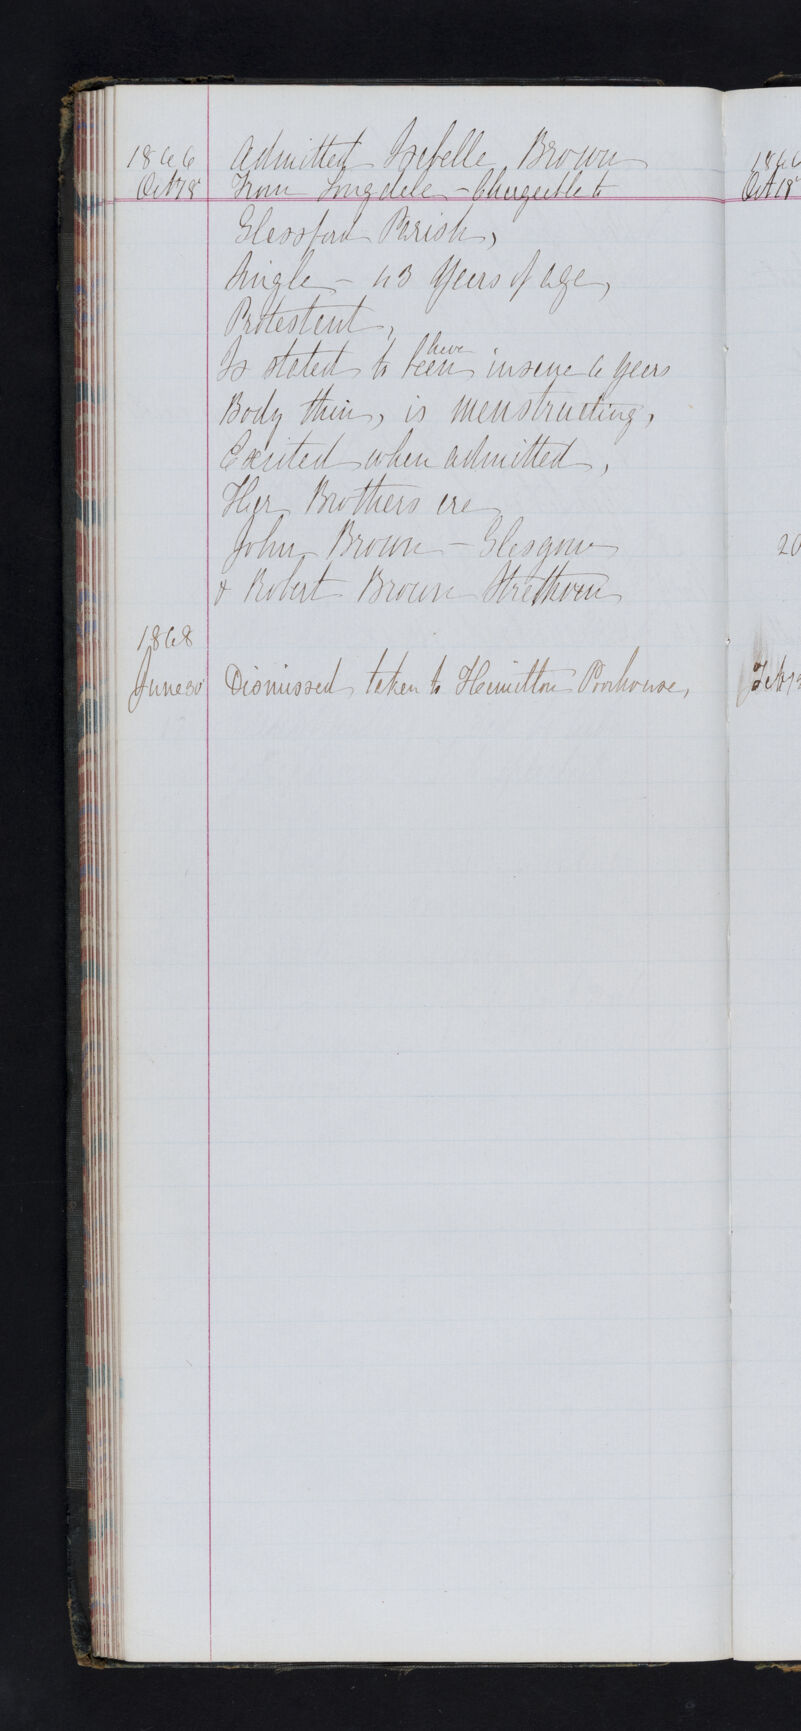 1866 Admitted Isabella Brown
Oct 18 From Longdale - Chargeable to
Glassford Parish,
Single - 43 Years of age,
Protestant,
Is stated to have been insane 6 years
Body thin, is menstruating,
Excited when admitted,
Her Brothers are
John Brown - Glasgow
& Robert Brown Strathaven
1868
June 30 Dismissed taken to Hamilton Poorhouse,
1866
Oct 18
20